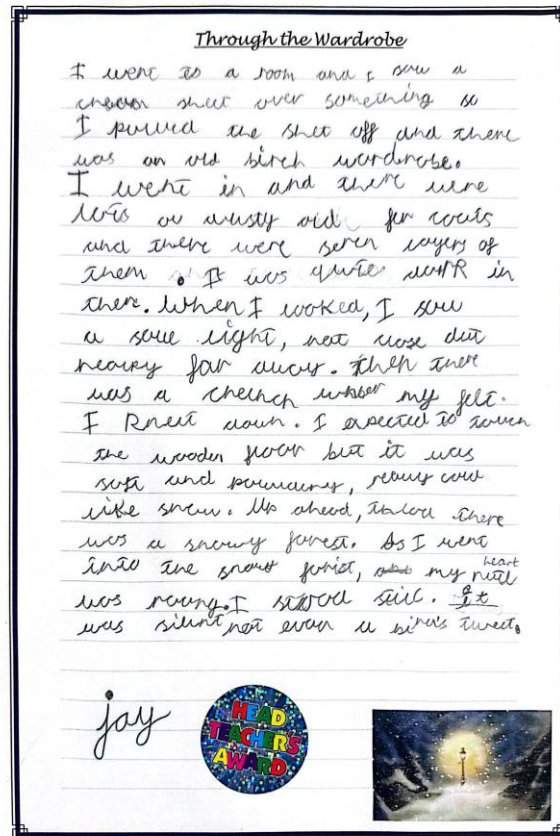 Through the Wardrobe
I went to a room and I saw a
cream sheet over something so
I powred the shet off and there
was an old birch wardrobe.
I went in and there were
lots ov musty old fur coats
and there were seven layers of
them. It was quite darR in
there. When I looked, I saw
a sole light, not close but
nearky far away. then there
was a cherch my felt.
I Rnelt down. I expected to touch
the wooden floor but it was
soft and powdary, really cold
like snow. Up ahead, there
was a snowy forest. As I went
into the snowy forist, my heart
was I stood still. It
was silent not even a bird's tweet.
jay
HEAD
TEACHER'S
AWARD